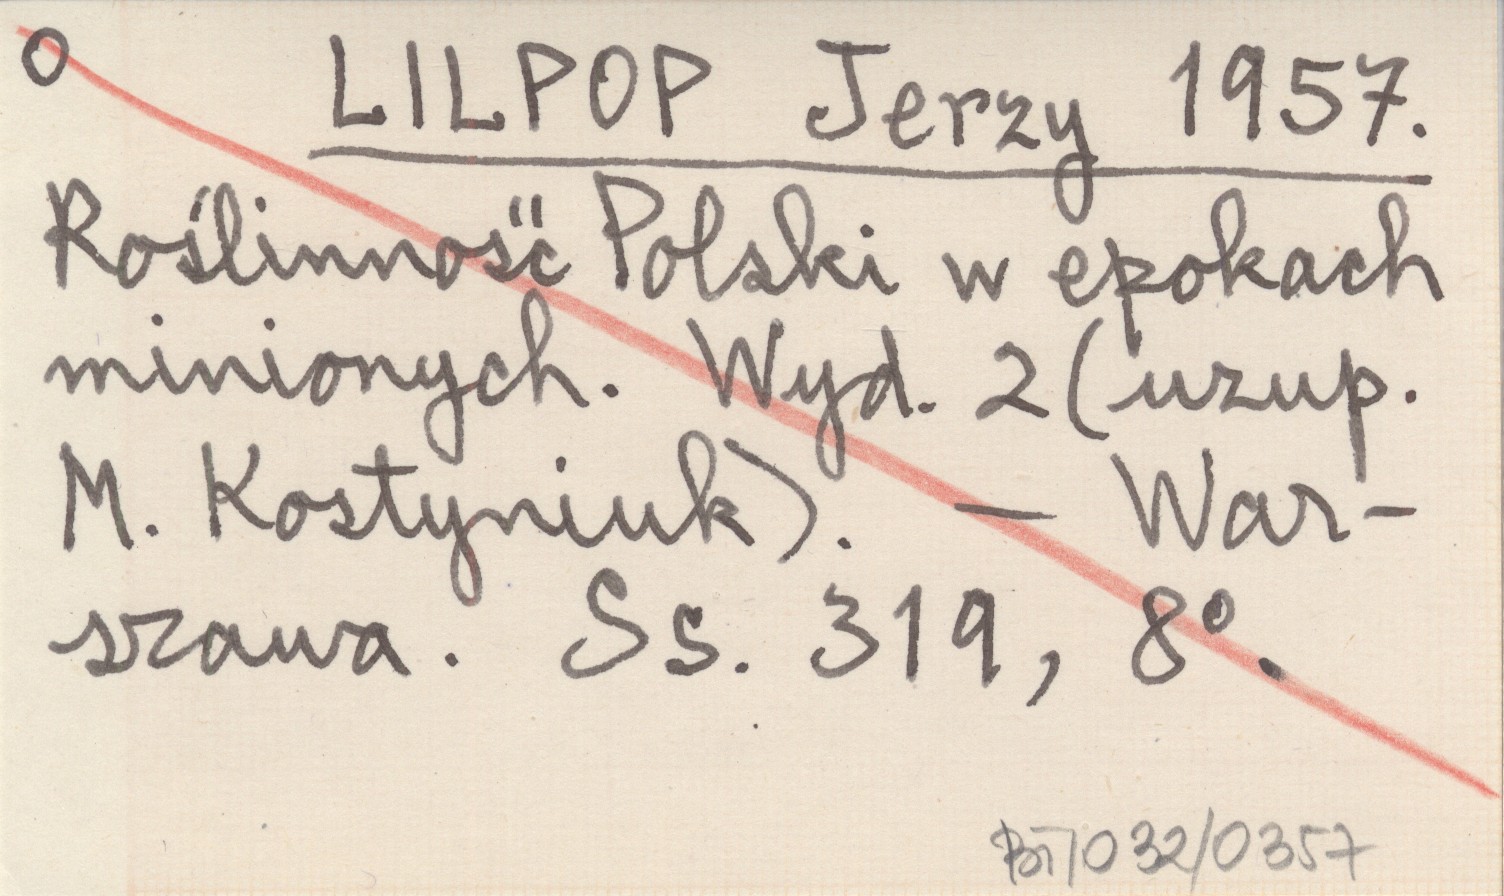 O
LILPOP Jerzy 1957.
Roślinność Polski w epokach
minionych. Wyd. 2 (uzup.
M. Kostyniuk). — War-
szawa. Ss. 319, 8°.
BT/032/0357